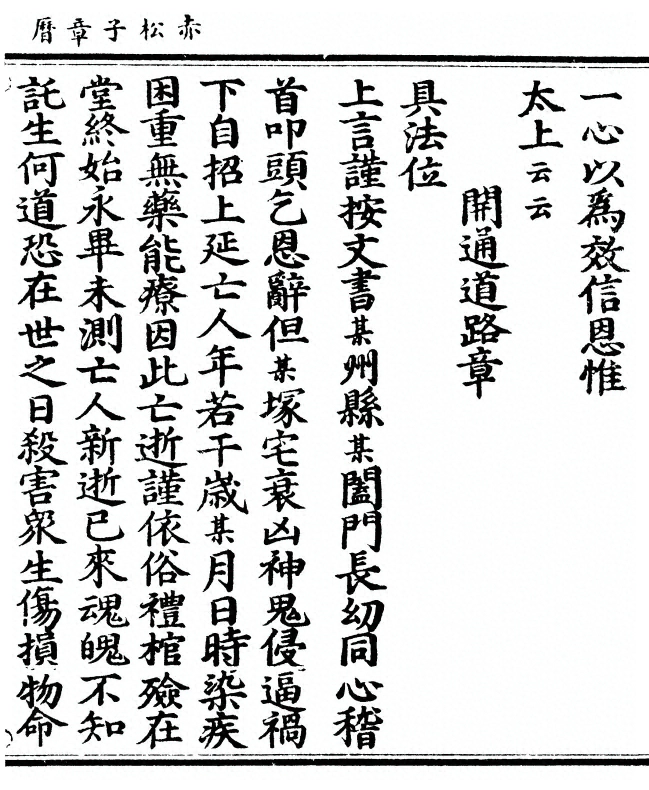 赤松子章曆
一心以爲效信恩惟
太上云云
開通道路章
具法位
上言謹按文書某州縣某闔門長幼同心稽
首叩頭乞恩辭但某塚宅衰凶神鬼侵逼禍
下自招上延亡人年若干歲某月日時染疾
困重無藥能療因此亡逝謹依俗禮棺殮在
堂終始永畢未測亡人新逝已來魂魄不知
託生何道恐在世之日殺害衆生傷損物命